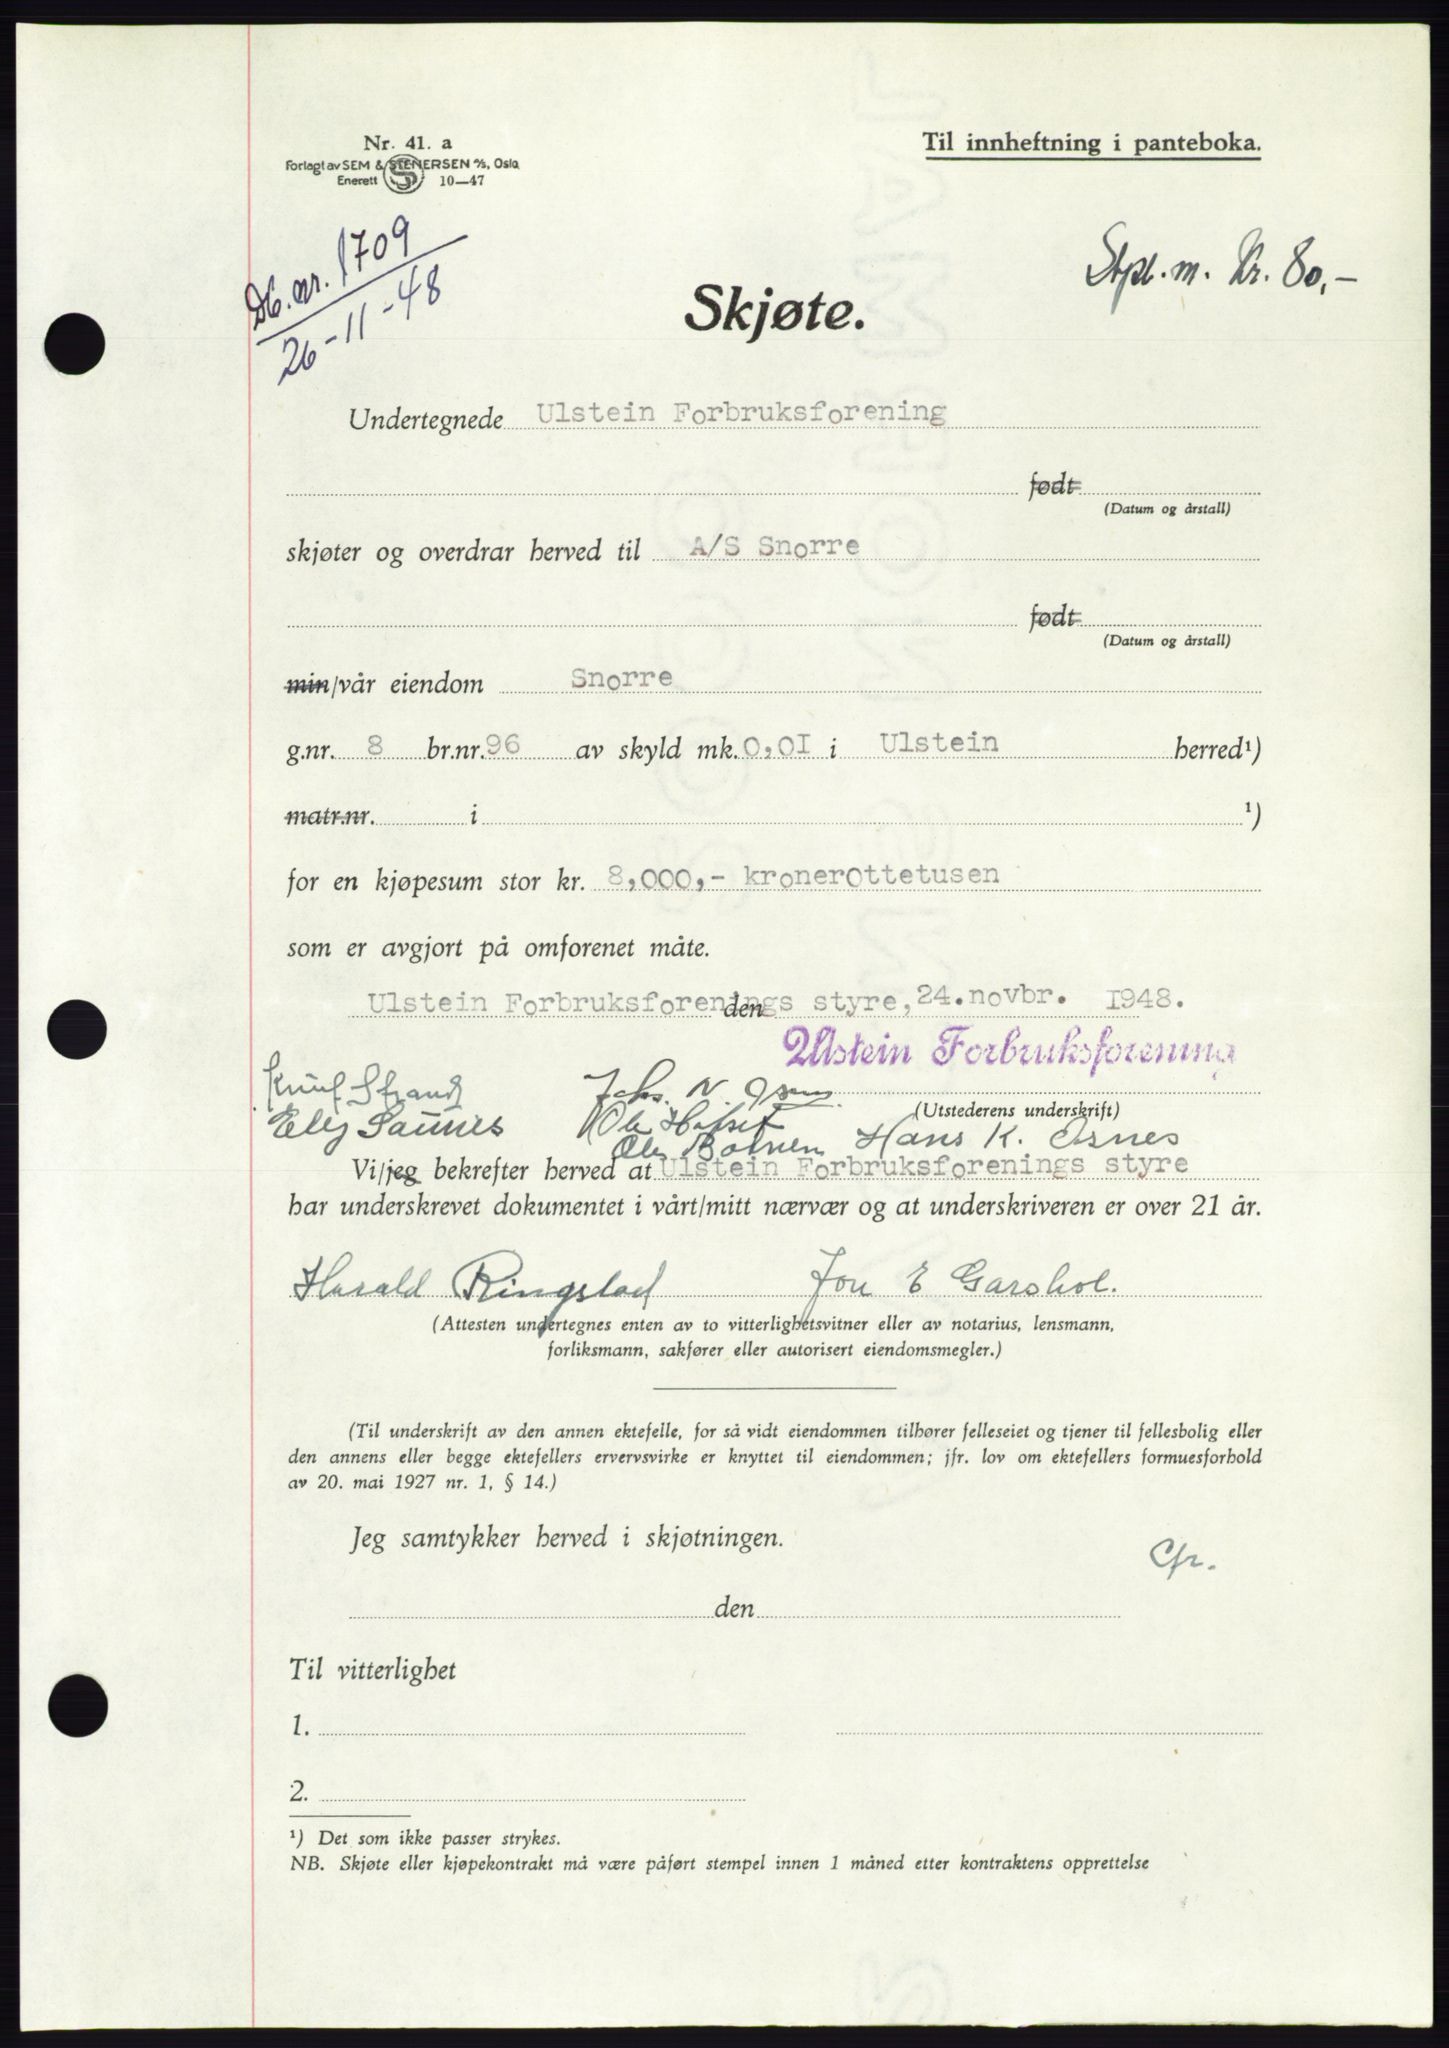 Nr. 41. a
Forlagt av SEM & STENERSEN A/S, Oslo
Enerett 10—47
Til innheftning i panteboka.
Db. nr. 1709
26-11-48
Stpl. m. Kr. 80,-
Skjøte.
Undertegnede Ulstein Forbruksforening
født
(Datum og årstall)
skjøter og overdrar herved til A/S Snorre
født
(Datum og årstall)
min/vår eiendom Snorre
g.nr. 8 br.nr. 96 av skyld mk. 0,01 i Ulstein herred¹)
matr.nr. i ¹)
for en kjøpesum stor kr. 8,000,- kronerottetusen
som er avgjort på omforenet måte.
Ulstein Forbruksforenings styre, den 24.novbr. 1948.
Ulstein Forbruksforening
Knut Strand Johs. N.
(Utstederens underskrift)
Ole Hans K. Osnes
Vi/jeg bekrefter herved at Ulstein Forbruksforenings styre
har underskrevet dokumentet i vårt/mitt nærvær og at underskriveren er over 21 år.
Harald Ringstad Jon E Garshol.
(Attesten undertegnes enten av to vitterlighetsvitner eller av notarius, lensmann,
forliksmann, sakfører eller autorisert eiendomsmegler.)
(Til underskrift av den annen ektefelle, for så vidt eiendommen tilhører felleseiet og tjener til fellesbolig eller
den annens eller begge ektefellers ervervsvirke er knyttet til eiendommen; jfr. lov om ektefellers formuesforhold
av 20. mai 1927 nr. 1, § 14.)
Jeg samtykker herved i skjøtningen.
den
Til vitterlighet
1.
2.
¹) Det som ikke passer strykes.
NB. Skjøte eller kjøpekontrakt må være påført stempel innen 1 måned etter kontraktens opprettelse